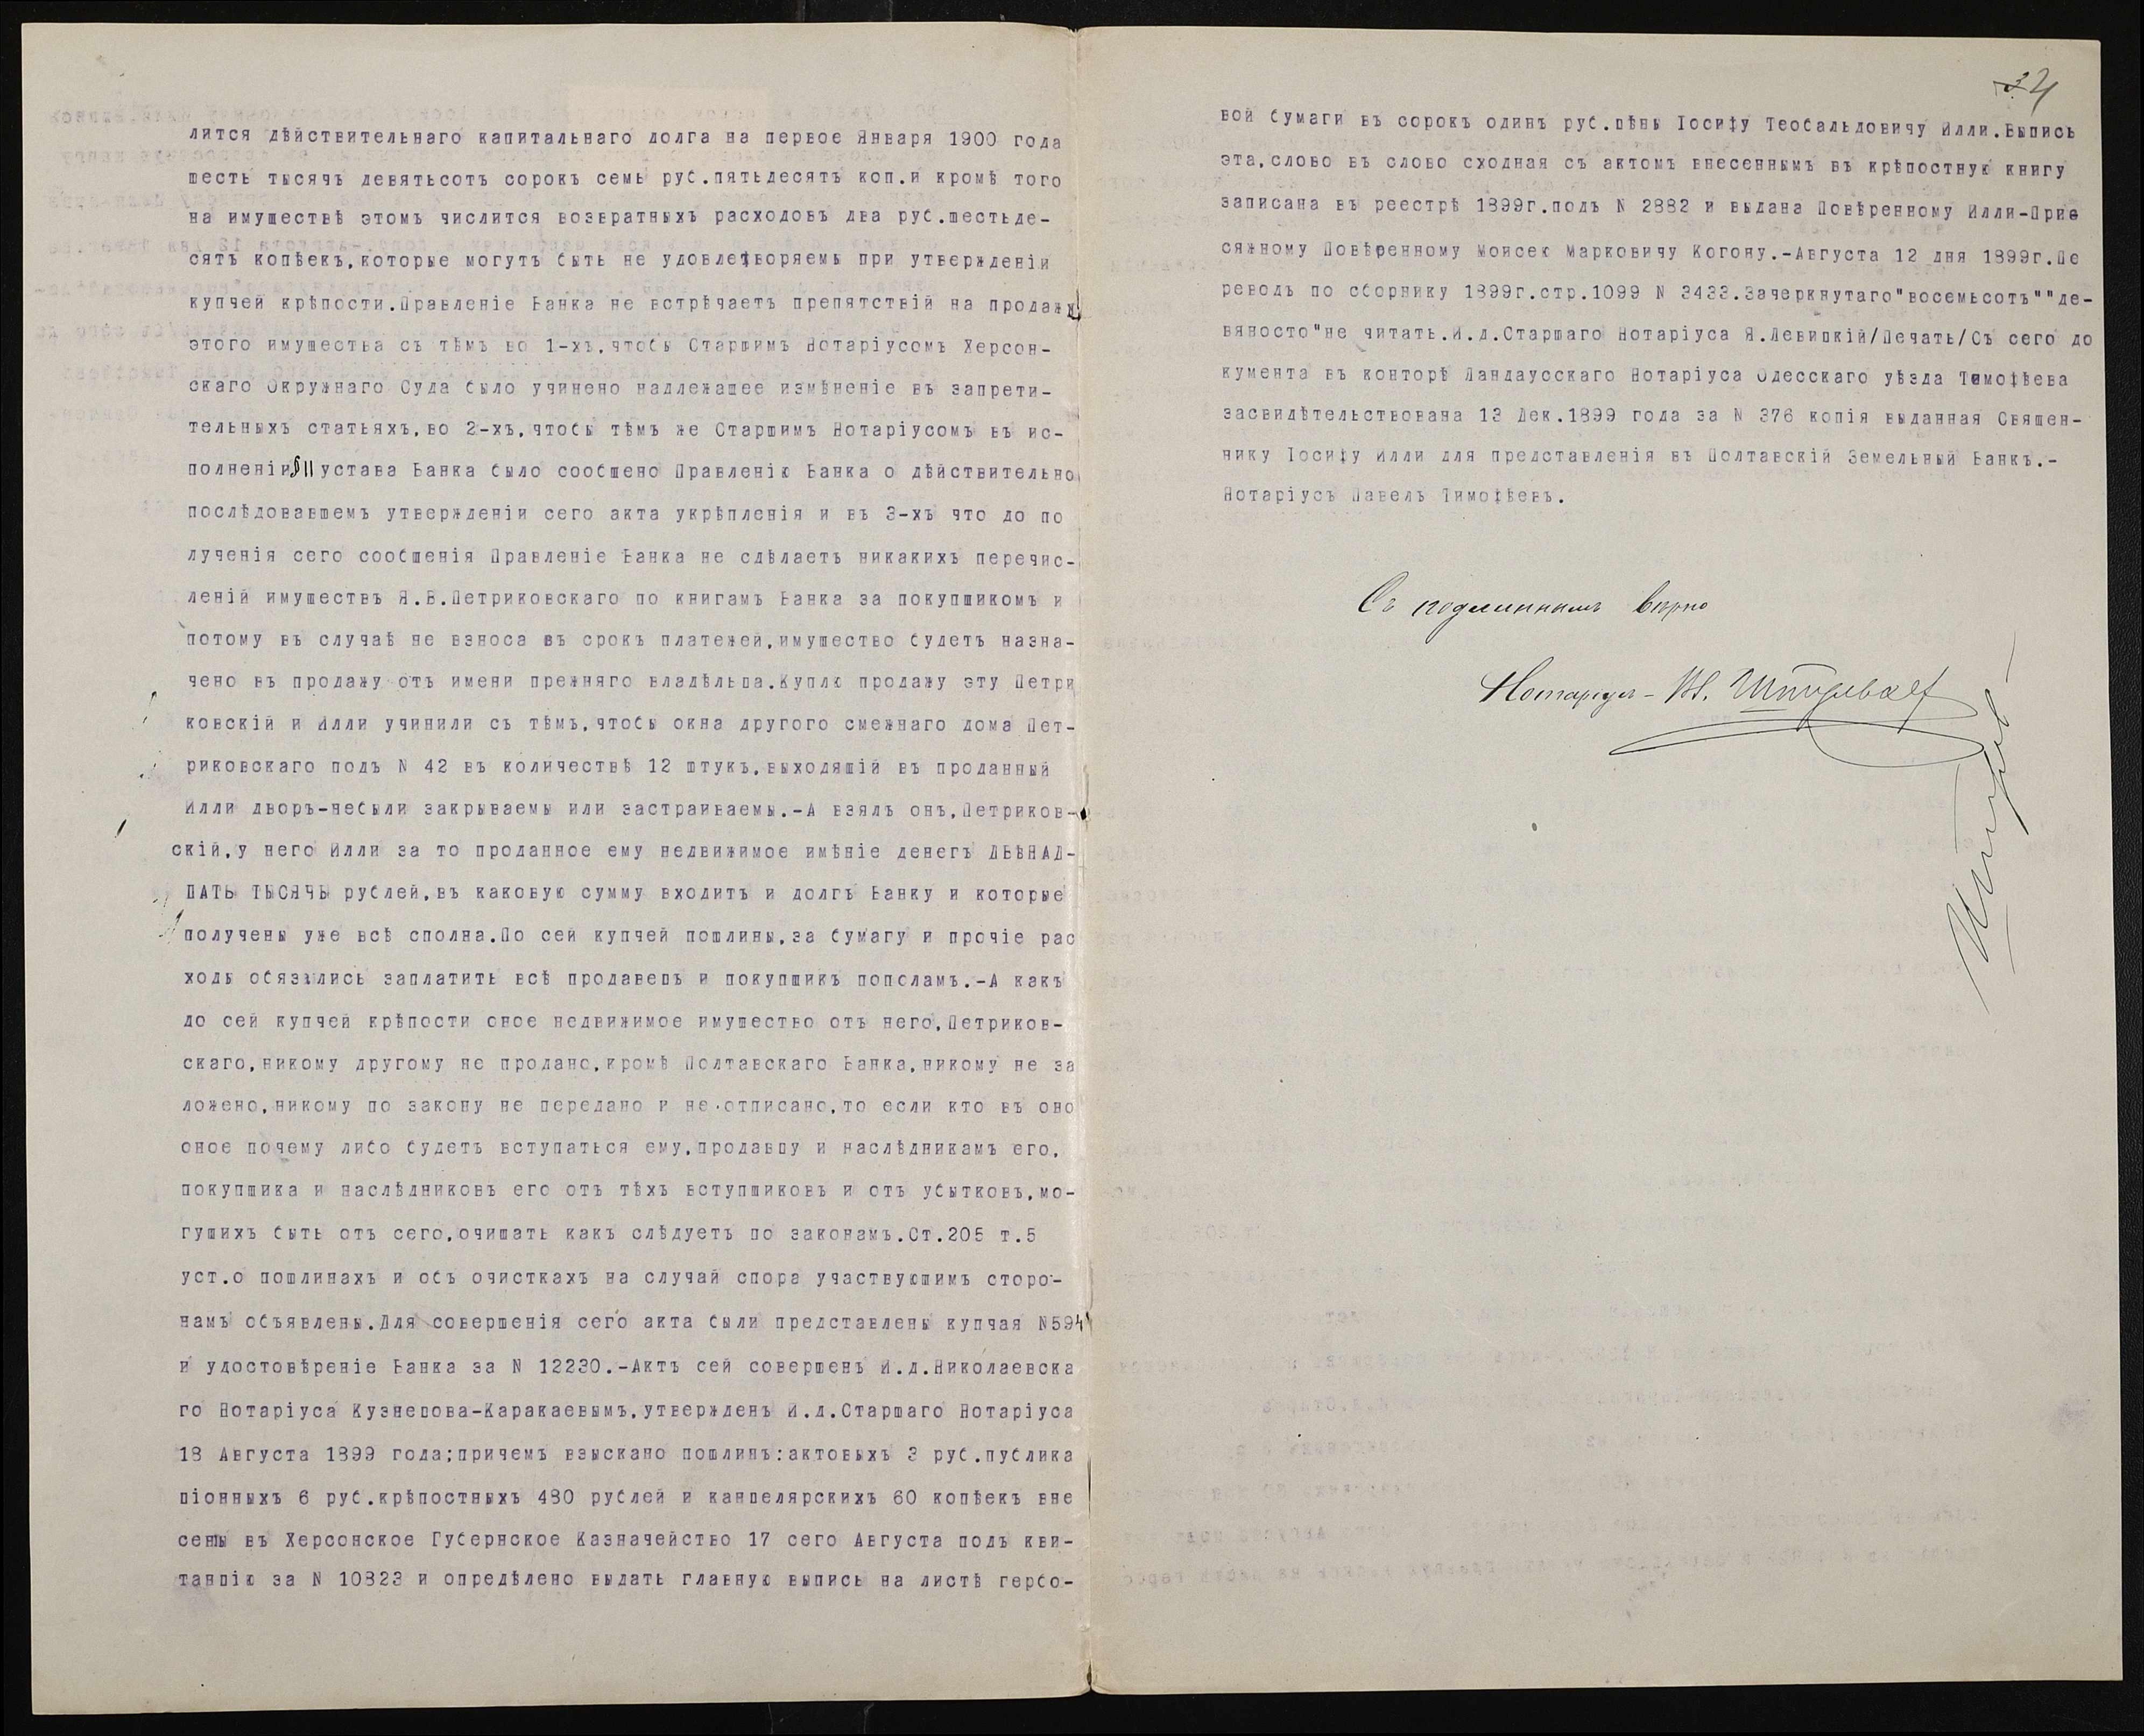 лится дѣйствительнаго капитальнаго долга на первое Января 1900 года
шесть тысячъ девятьсотъ сорокъ семь руб.пятьдесятъ коп.и кромѣ того
на имуществѣ этомъ числится возвратныхъ расходовъ два руб.шестьде-
сятъ копѣекъ,которые могутъ быть не удовлетворяемы при утвержденіи
купчей крѣпости.Правленіе Банка не встрѣчаетъ препятствій на продажу
этого имущества съ тѣмъ во 1-хъ,чтобы Старшимъ Нотаріусомъ Херсон-
скаго Окружнаго Суда было учинено надлежащее измѣненіе въ запрети-
тельныхъ статьяхъ,во 2-хъ,чтобы тѣмъ же Старшимъ Нотаріусомъ въ ис-
полненіи §11 устава Банка было сообщено Правленію Банка о дѣйствительно
послѣдовавшемъ утвержденіи сего акта укрѣпленія и въ 3-хъ что до по
лученія сего сообщенія Правленіе Банка не сдѣлаетъ никакихъ перечис-
леній имуществъ Я.В.Петриковскаго по книгамъ Банка за покупщикомъ и
потому въ случаѣ не взноса въ срокъ платежей,имущество будетъ назна-
чено въ продажу отъ имени прежняго владѣльца.Куплю продажу эту Петри
ковскій и Илли учинили съ тѣмъ,чтобы окна другого смежнаго дома Пет-
риковскаго подъ N 42 въ количествѣ 12 штукъ,выходящій въ проданный
Илли дворъ-небыли закрываемы или застраиваемы.-А взялъ онъ,Петриков-
скій,у него Илли за то проданное ему недвижимое имѣніе денегъ ДВѢНАД-
ЦАТЬ ТЫСЯЧЪ рублей,въ каковую сумму входитъ и долгъ Банку и которые
получены уже всѣ сполна.По сей купчей пошлины,за бумагу и прочіе рас
ходы обязались заплатить всѣ продавецъ и покупщикъ пополамъ.-А какъ
до сей купчей крѣпости оное недвижимое имущество отъ него,Петриков-
скаго,никому другому не продано,кромѣ Полтавскаго Банка,никому не за
ложено,никому по закону не передано и не отписано,то если кто въ оно
оное почему либо будетъ вступаться ему,продавцу и наслѣдникамъ его,
покупщика и наслѣдниковъ его отъ тѣхъ вступщиковъ и отъ убытковъ,мо-
гущихъ быть отъ сего,очищать какъ слѣдуетъ по законамъ.Ст.205 т.5
уст.о пошлинахъ и объ очисткахъ на случай спора участвующимъ сторо-
намъ объявлены.Для совершенія сего акта были представлены купчая N594
и удостовѣреніе Банка за N 12230.-Актъ сей совершенъ И.д.Николаевска
го Нотаріуса Кузнецова-Каракаевымъ,утвержденъ И.д.Старшаго Нотаріуса
18 Августа 1899 года;причемъ взыскано пошлинъ:актовыхъ 3 руб.публика
ціонныхъ 6 руб.крѣпостныхъ 480 рублей и канцелярскихъ 60 копѣекъ вне
сены въ Херсонское Губернское Казначейство 17 сего Августа подъ кви-
танцію за N 10823 и опредѣлено выдать главную выпись на листѣ гербо-
34
вой бумаги въ сорокъ одинъ руб.цѣны Іосифу Теобальдовичу Илли.Выпись
эта,слово въ слово сходная съ актомъ внесеннымъ въ крѣпостную книгу
записана въ реестрѣ 1899г.подъ N 2882 и выдана Повѣренному Илли-При
сяжному Повѣренному Моисею Марковичу Когону.-Августа 12 дня 1899г.Пе
реводъ по сборнику 1899г.стр.1099 N 3433.Зачеркнутаго"восемьсотъ""де-
вяносто"не читать.И.д.Старшаго Нотаріуса Я.Левицкій/Печать/Съ сего до
кумента въ конторѣ Ландаусскаго Нотаріуса Одесскаго уѣзда Тимофѣева
засвидѣтельствована 13 Дек.1899 года за N 376 копія выданная Священ-
нику Іосифу Илли для представленія въ Полтавскій Земельный Банкъ.-
Нотаріусъ Павелъ Тимофѣевъ.
Съ подлиннымъ вѣрно
Нотаріусъ -